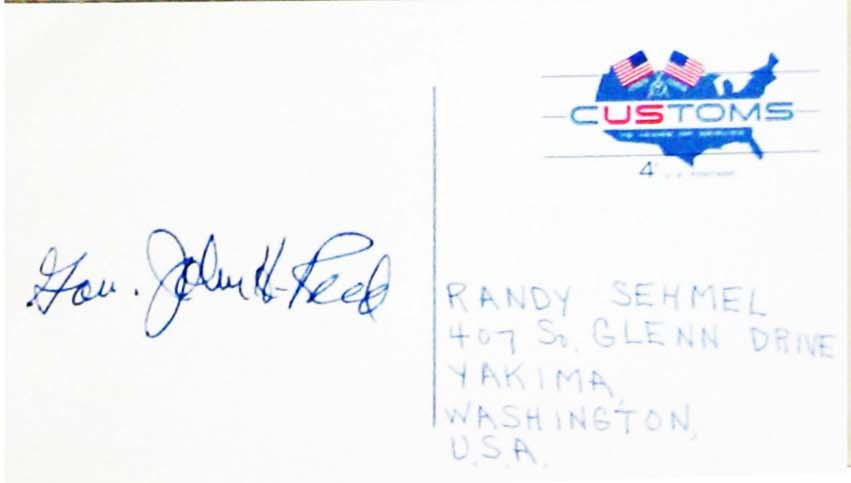 CUSTOMS
4¢ U.S. POSTAGE
Gov. John H. Reed
RANDY SEHMEL
407 So. GLENN DRIVE
YAKIMA,
WASHINGTON,
U.S.A.